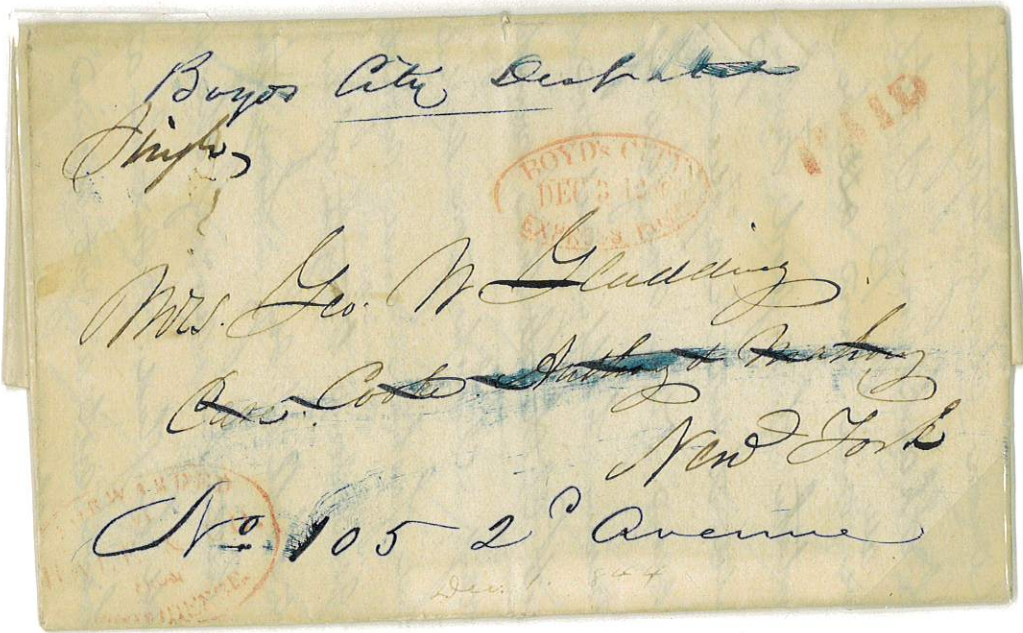 Boyds City Despatch
Single
PAID
BOYD'S CITY
DEC 3 12
EXPRESS POST
Mrs. Geo. W Gladding
Care. Cooke Anthony & Mahony
New York
FORWARDED
No 105 2d Avenue
Dec. 1. 844